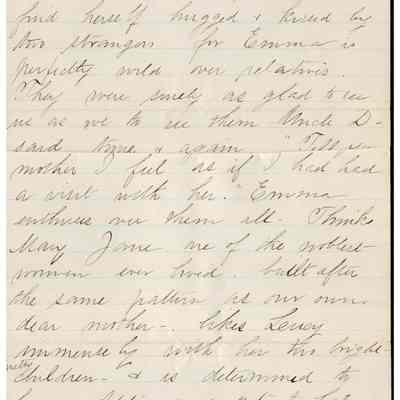 find herself hugged & kissed by
two strangers for Emma is
perfectly wild over relatives.
They were surely as glad to see
us as we to see them Uncle D-
said time & again "Tell your
mother I feel as if I had had
a visit with her." Emma
enthuses over them all. Thinks
Mary Jane one of the noblest
women ever lived. built after
the same pattern as our own
dear mother-. likes Lucy
immensely with her two bright
pretty
children- & is determined to